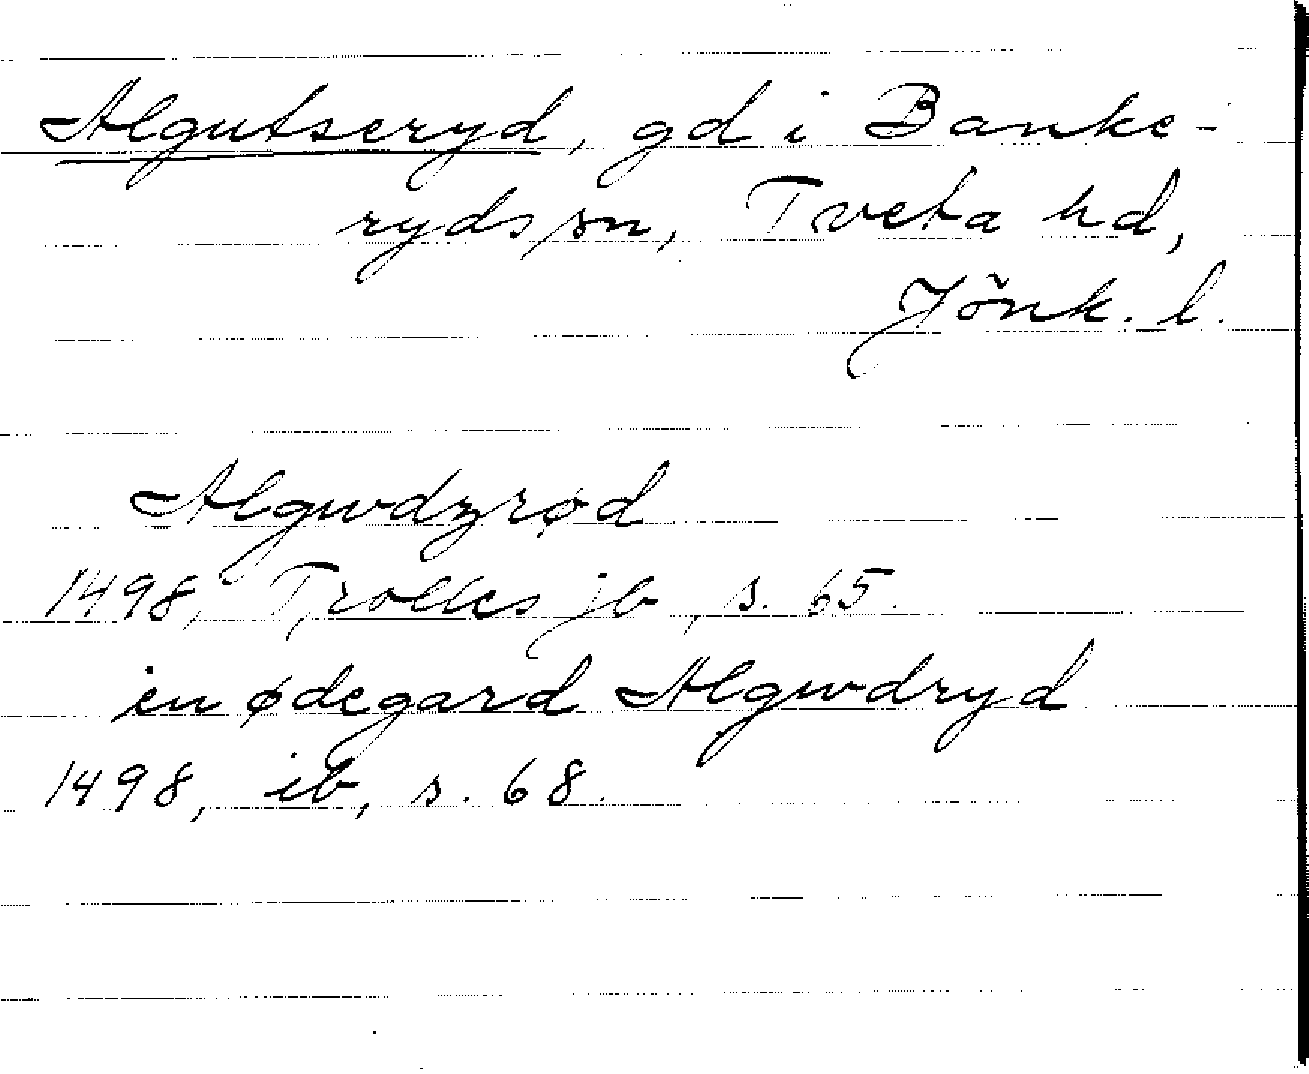 Algutseryd, gd i Banke-
ryds sn, Tveta hd,
Jönk. l.
Algwdzrød
1498, Trolles jb, s. 65.
en ødegard Algwdryd
1498, ib, s. 68.